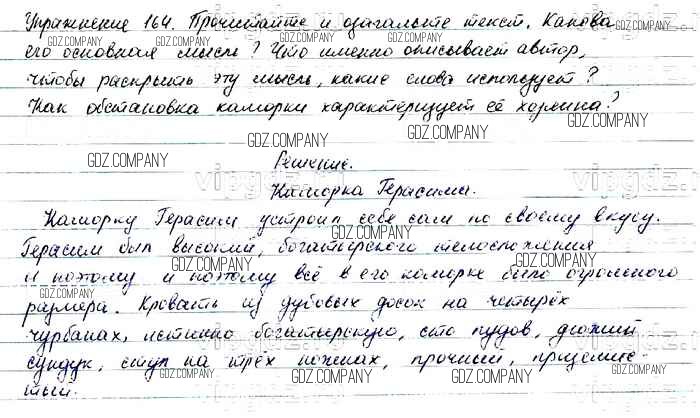 Упражнение 164. Прочитайте и озаглавьте текст. Какова
его основная мысль? Что именно описывает автор,
чтобы раскрыть эту мысль, какие слова использует?
Как обстановка каморки характеризует её хозяина?
Решение.
Каморка Герасима.
Каморку Герасим устроил себе сам по своему вкусу.
Герасим был высокий, богатырского телосложения
и поэтому и поэтому всё в его каморке было огромного
размера. Кровать из дубовых досок на четырёх
чурбанах, истинно богатырскую, сто пудов, дюжий
сундук, стул на трёх ножках, прочный, приземис-
тый.
GDZ.COMPANY
vipgdz